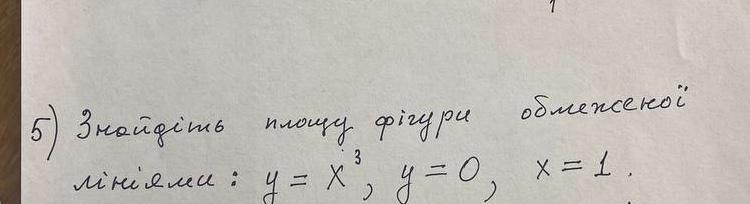 5) Знайдіть площу фігури обмеженої
лініями: y = x³, y = 0, x = 1.